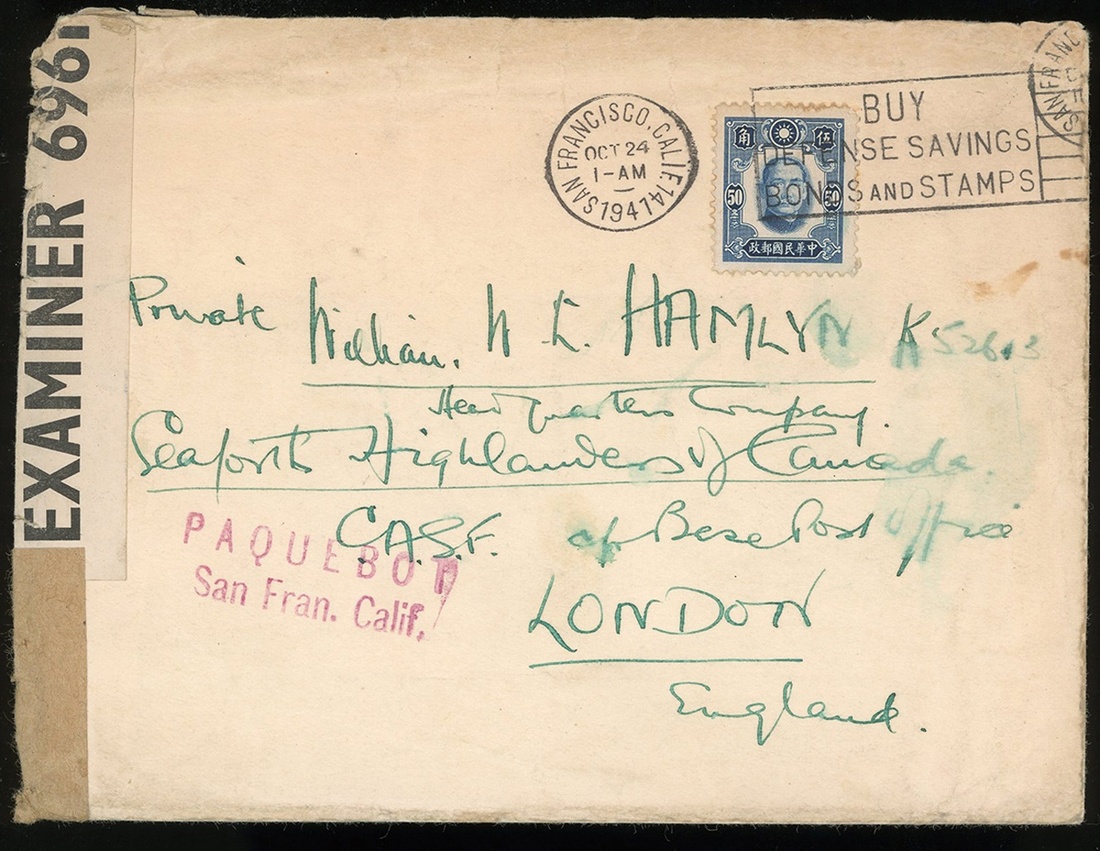 EXAMINER 6961
SAN FRANCISCO, CALIF. 14
OCT 24
1-AM
1941
伍 角
50 50
政郵國民華中
BUY
DEFENSE SAVINGS
BONDS AND STAMPS
SAN FRANC
Private William. W L. HAMLYN K 52613
Headquarters Company.
Seaforth Highlanders of Canada.
C.A.S.F. c/o Base Post Office
LONDON
England.
PAQUEBOT
San Fran. Calif.